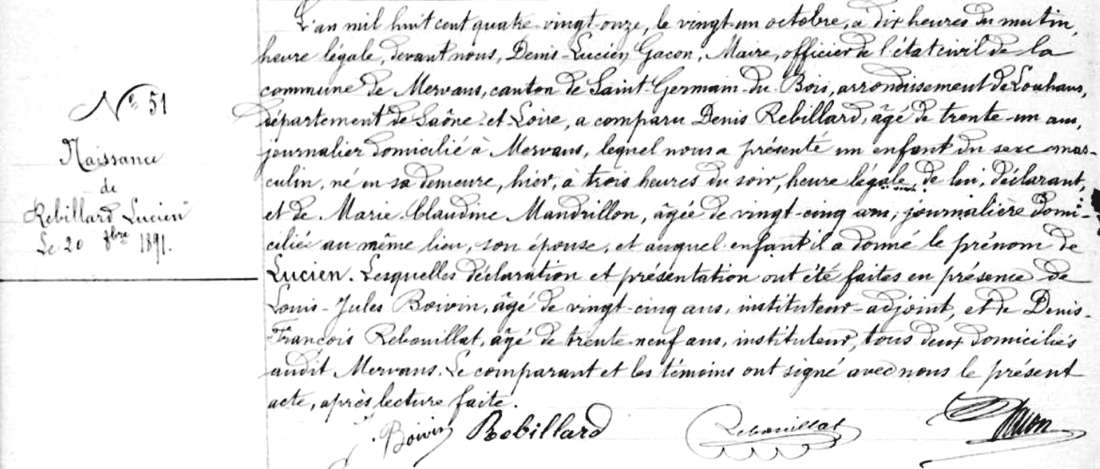 N° 51
Naissance
de
Rebillard Lucien
Le 20 8bre 1891.
L'an mil huit cent quatre-vingt-onze, le vingt-un octobre, à dix heures du matin,
heure légale, devant nous, Denis-Lucien Gacon, Maire, officier de l'état civil de la
commune de Mervans, canton de Saint-Germain-du-Bois, arrondissement de Louhans,
département de Saône-et-Loire, a comparu Denis Rebillard, âgé de trente-un ans,
journalier domicilié à Mervans, lequel nous a présenté un enfant du sexe mas-
culin, né en sa demeure, hier, à trois heures du soir, heure légale, de lui, déclarant,
et de Marie-Claudine Mandrillon, âgée de vingt-cinq ans, journalière domi-
ciliée au même lieu, son épouse, et auquel enfant il a donné le prénom de
Lucien. Lesquelles déclaration et présentation ont été faites en présence de
Louis-Jules Boivin, âgé de vingt-cinq ans, instituteur-adjoint, et de Denis-
François Rebouillat, âgé de trente-neuf ans, instituteur, tous deux domiciliés
audit Mervans. Le comparant et les témoins ont signé avec nous le présent
acte, après lecture faite.
J. Boivin Rebillard Rebouillat Gacon